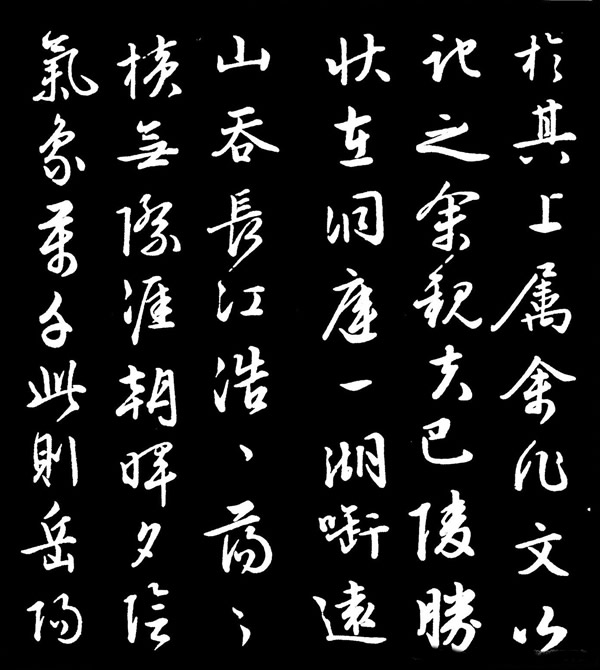 於其上属余作文以
記之余觀夫巴陵勝
狀在洞庭一湖啣遠
山吞長江浩〻蕩〻
横無際涯朝暉夕陰
氣象萬千此則岳陽